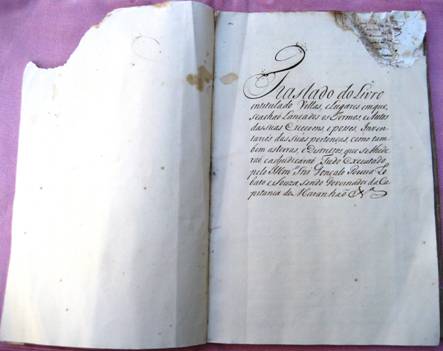 Traslado do Livro
intitulado Villas, e Lugares em que
se achaõ Lançados os Termos, e Autos
das suas Ereçoens, e posses, Inven-
tarios das suas pertenças, como tam-
bem as terras, e Destrictos, que se lhe de-
raõ e adjudicaraõ. Tudo Executado
pelo Illmo Snr Gonçalo Pereira Lo-
bato e Souza sendo Governador da Ca-
pitania do Maranhaõ